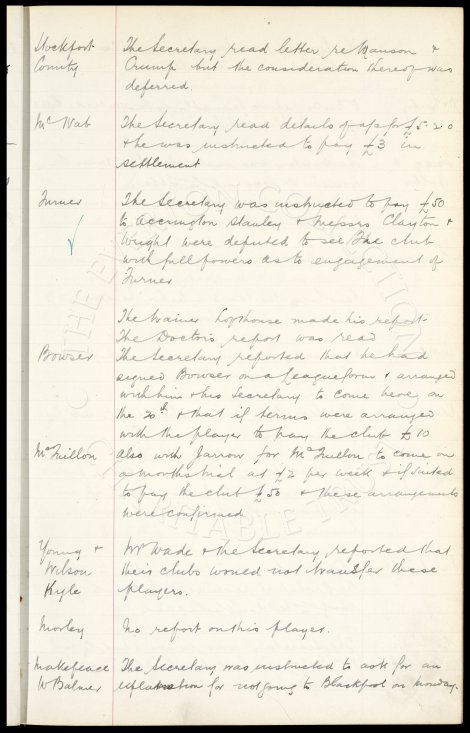 Stockport The Secretary read letter re Manson &
County Crump but the consideration thereof was
deferred.
McNab The Secretary read details of a/c for £5.2.0
& he was instructed to pay £3 in
settlement
Turner The Secretary was instructed to pay £50
to Accrington Stanley & Messrs Clayton &
Wright were deputed to see the club
with full powers as to engagement of
Turner
The trainer Lofthouse made his report.
The Doctors report was read
Bowser The Secretary reported that he had
signed Bowser on a League form & arranged
with him & his Secretary to come here on
the 20th & that if terms were arranged
with the player to pay the club £10
McQuillon Also with Jarrow for McQuillon to come on
a months trial at £2 per week & if suited
to pay the club £50 & these arrangements
were confirmed
Young & Mr Wade & the Secretary reported that
Wilson their clubs would not transfer these
Kyle players.
Morley No report on this player.
Makepeace The Secretary was instructed to ask for an
W Balmer explanation for not going to Blackpool on Monday.